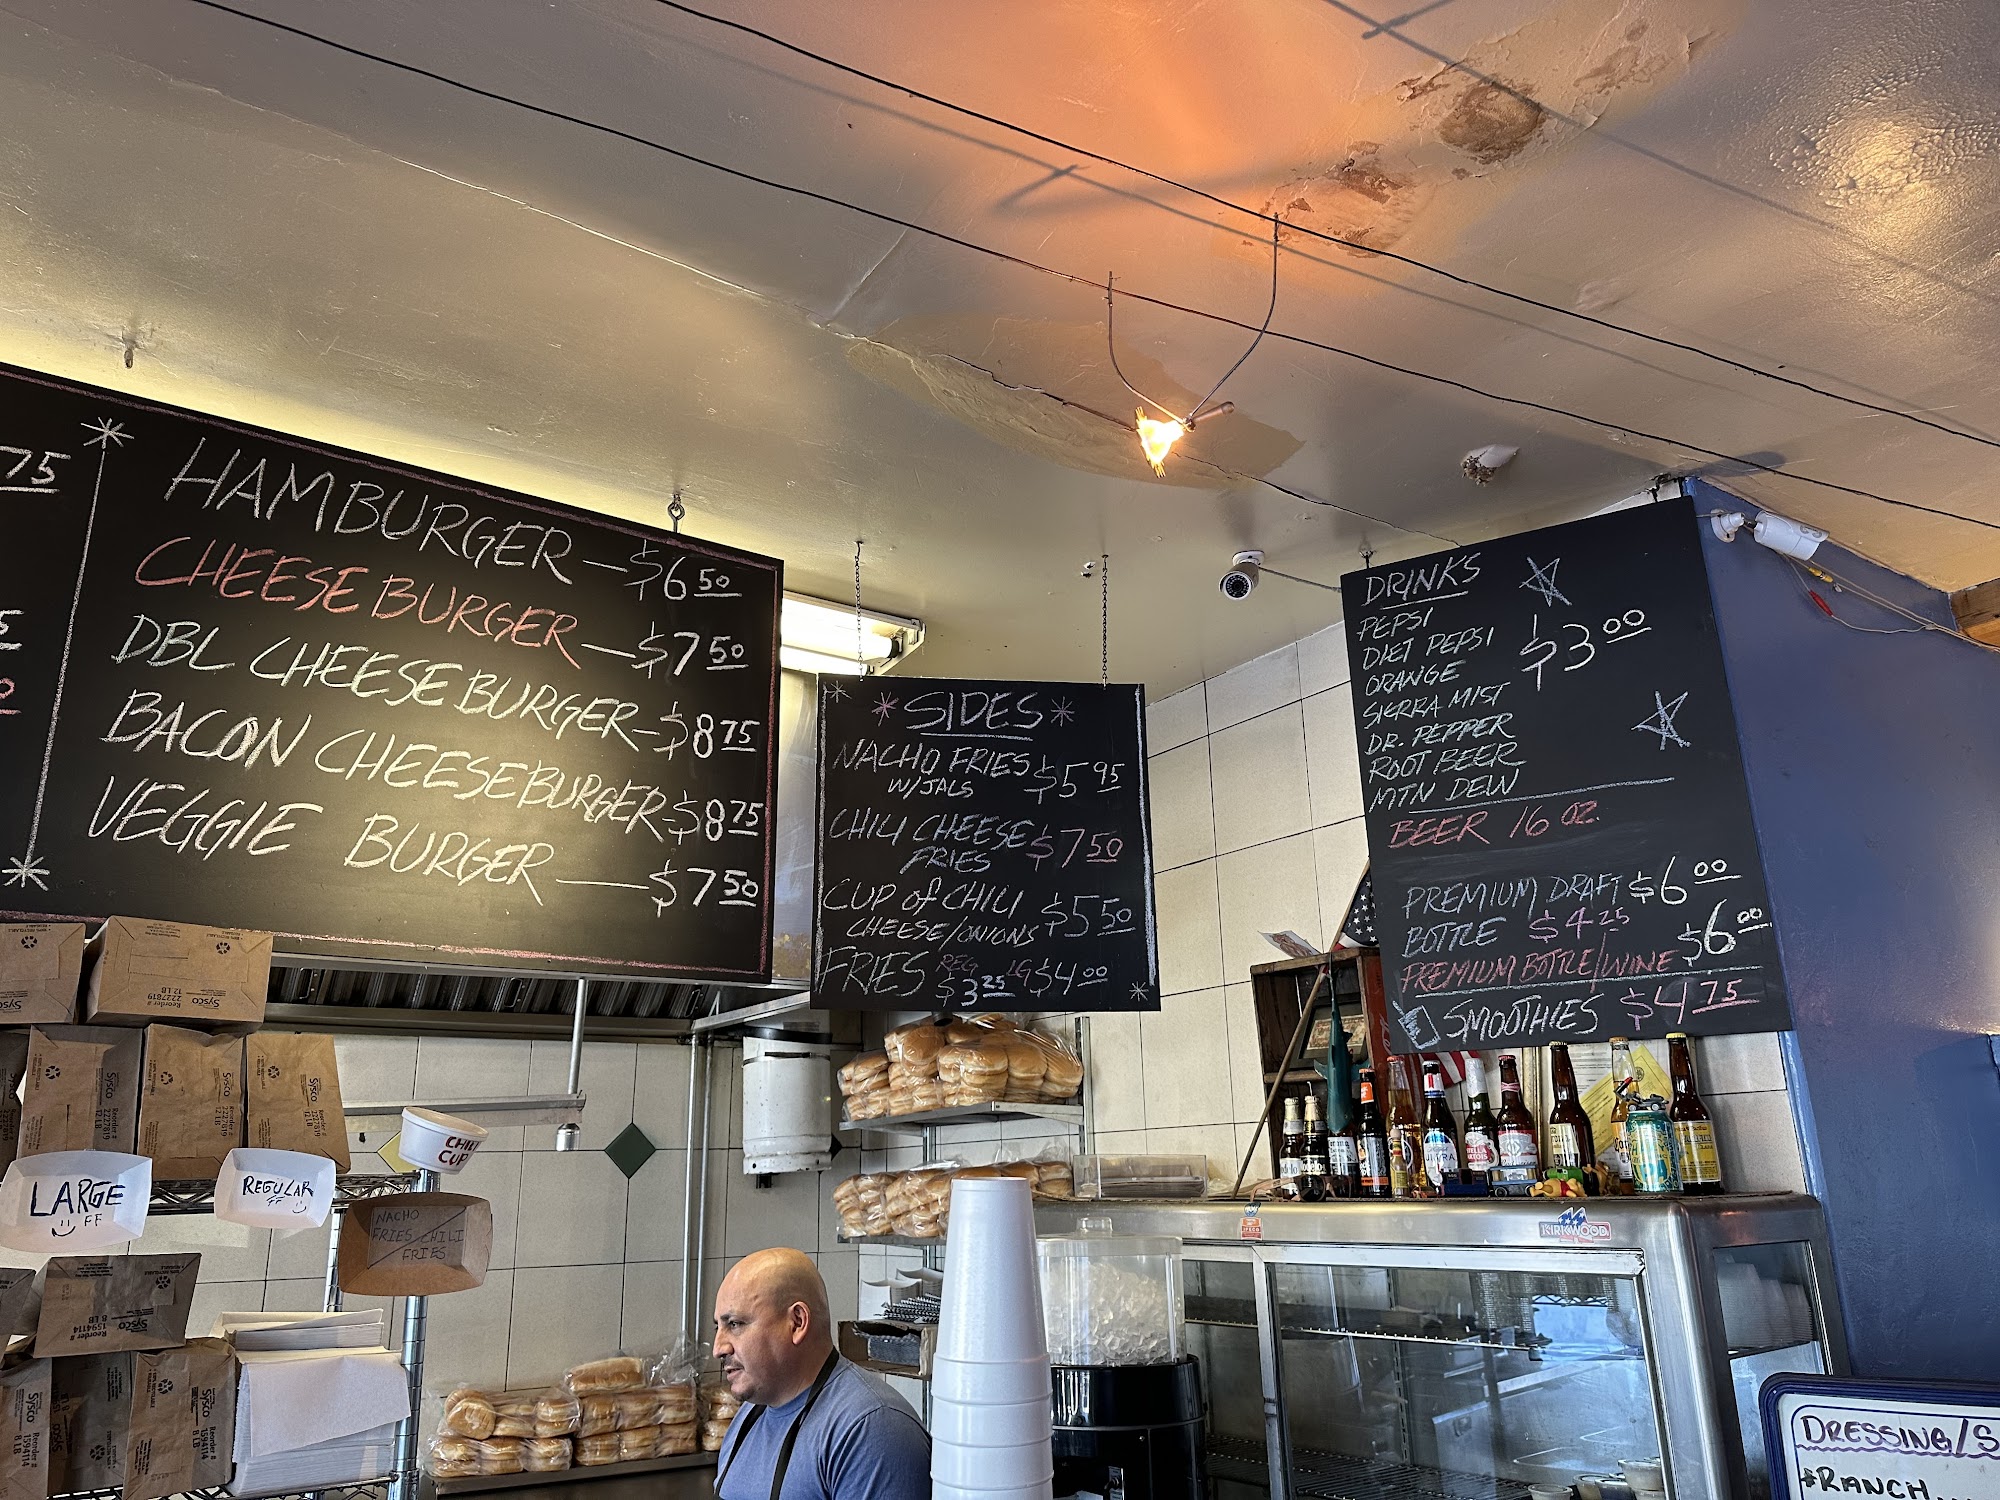 75
HAMBURGER — $6 50
CHEESEBURGER — $7 50
DBL CHEESEBURGER - $8 75
BACON CHEESEBURGER - $8 75
VEGGIE BURGER — $7 50
SIDES
NACHO FRIES $5 95
W/JALS
CHILI CHEESE $7 50
FRIES
CUP of CHILI $5 50
CHEESE/ONIONS
FRIES REG $3 25 LG $4 00
DRINKS
PEPSI
DIET PEPSI $3 00
ORANGE
SIERRA MIST
DR. PEPPER
ROOT BEER
MTN DEW
BEER 16 OZ.
PREMIUM DRAFT $6 00
BOTTLE $4 25
PREMIUM BOTTLE/WINE $6 00
SMOOTHIES $4 75
LARGE
FF
REGULAR
FF
CHILI
CUP
NACHO
FRIES/CHILI
FRIES
Sysco
Reorder #
2227819
12 LB
Sysco
Reorder #
1594114
8 LB
KIRKWOOD
DRESSING/S
#RANCH